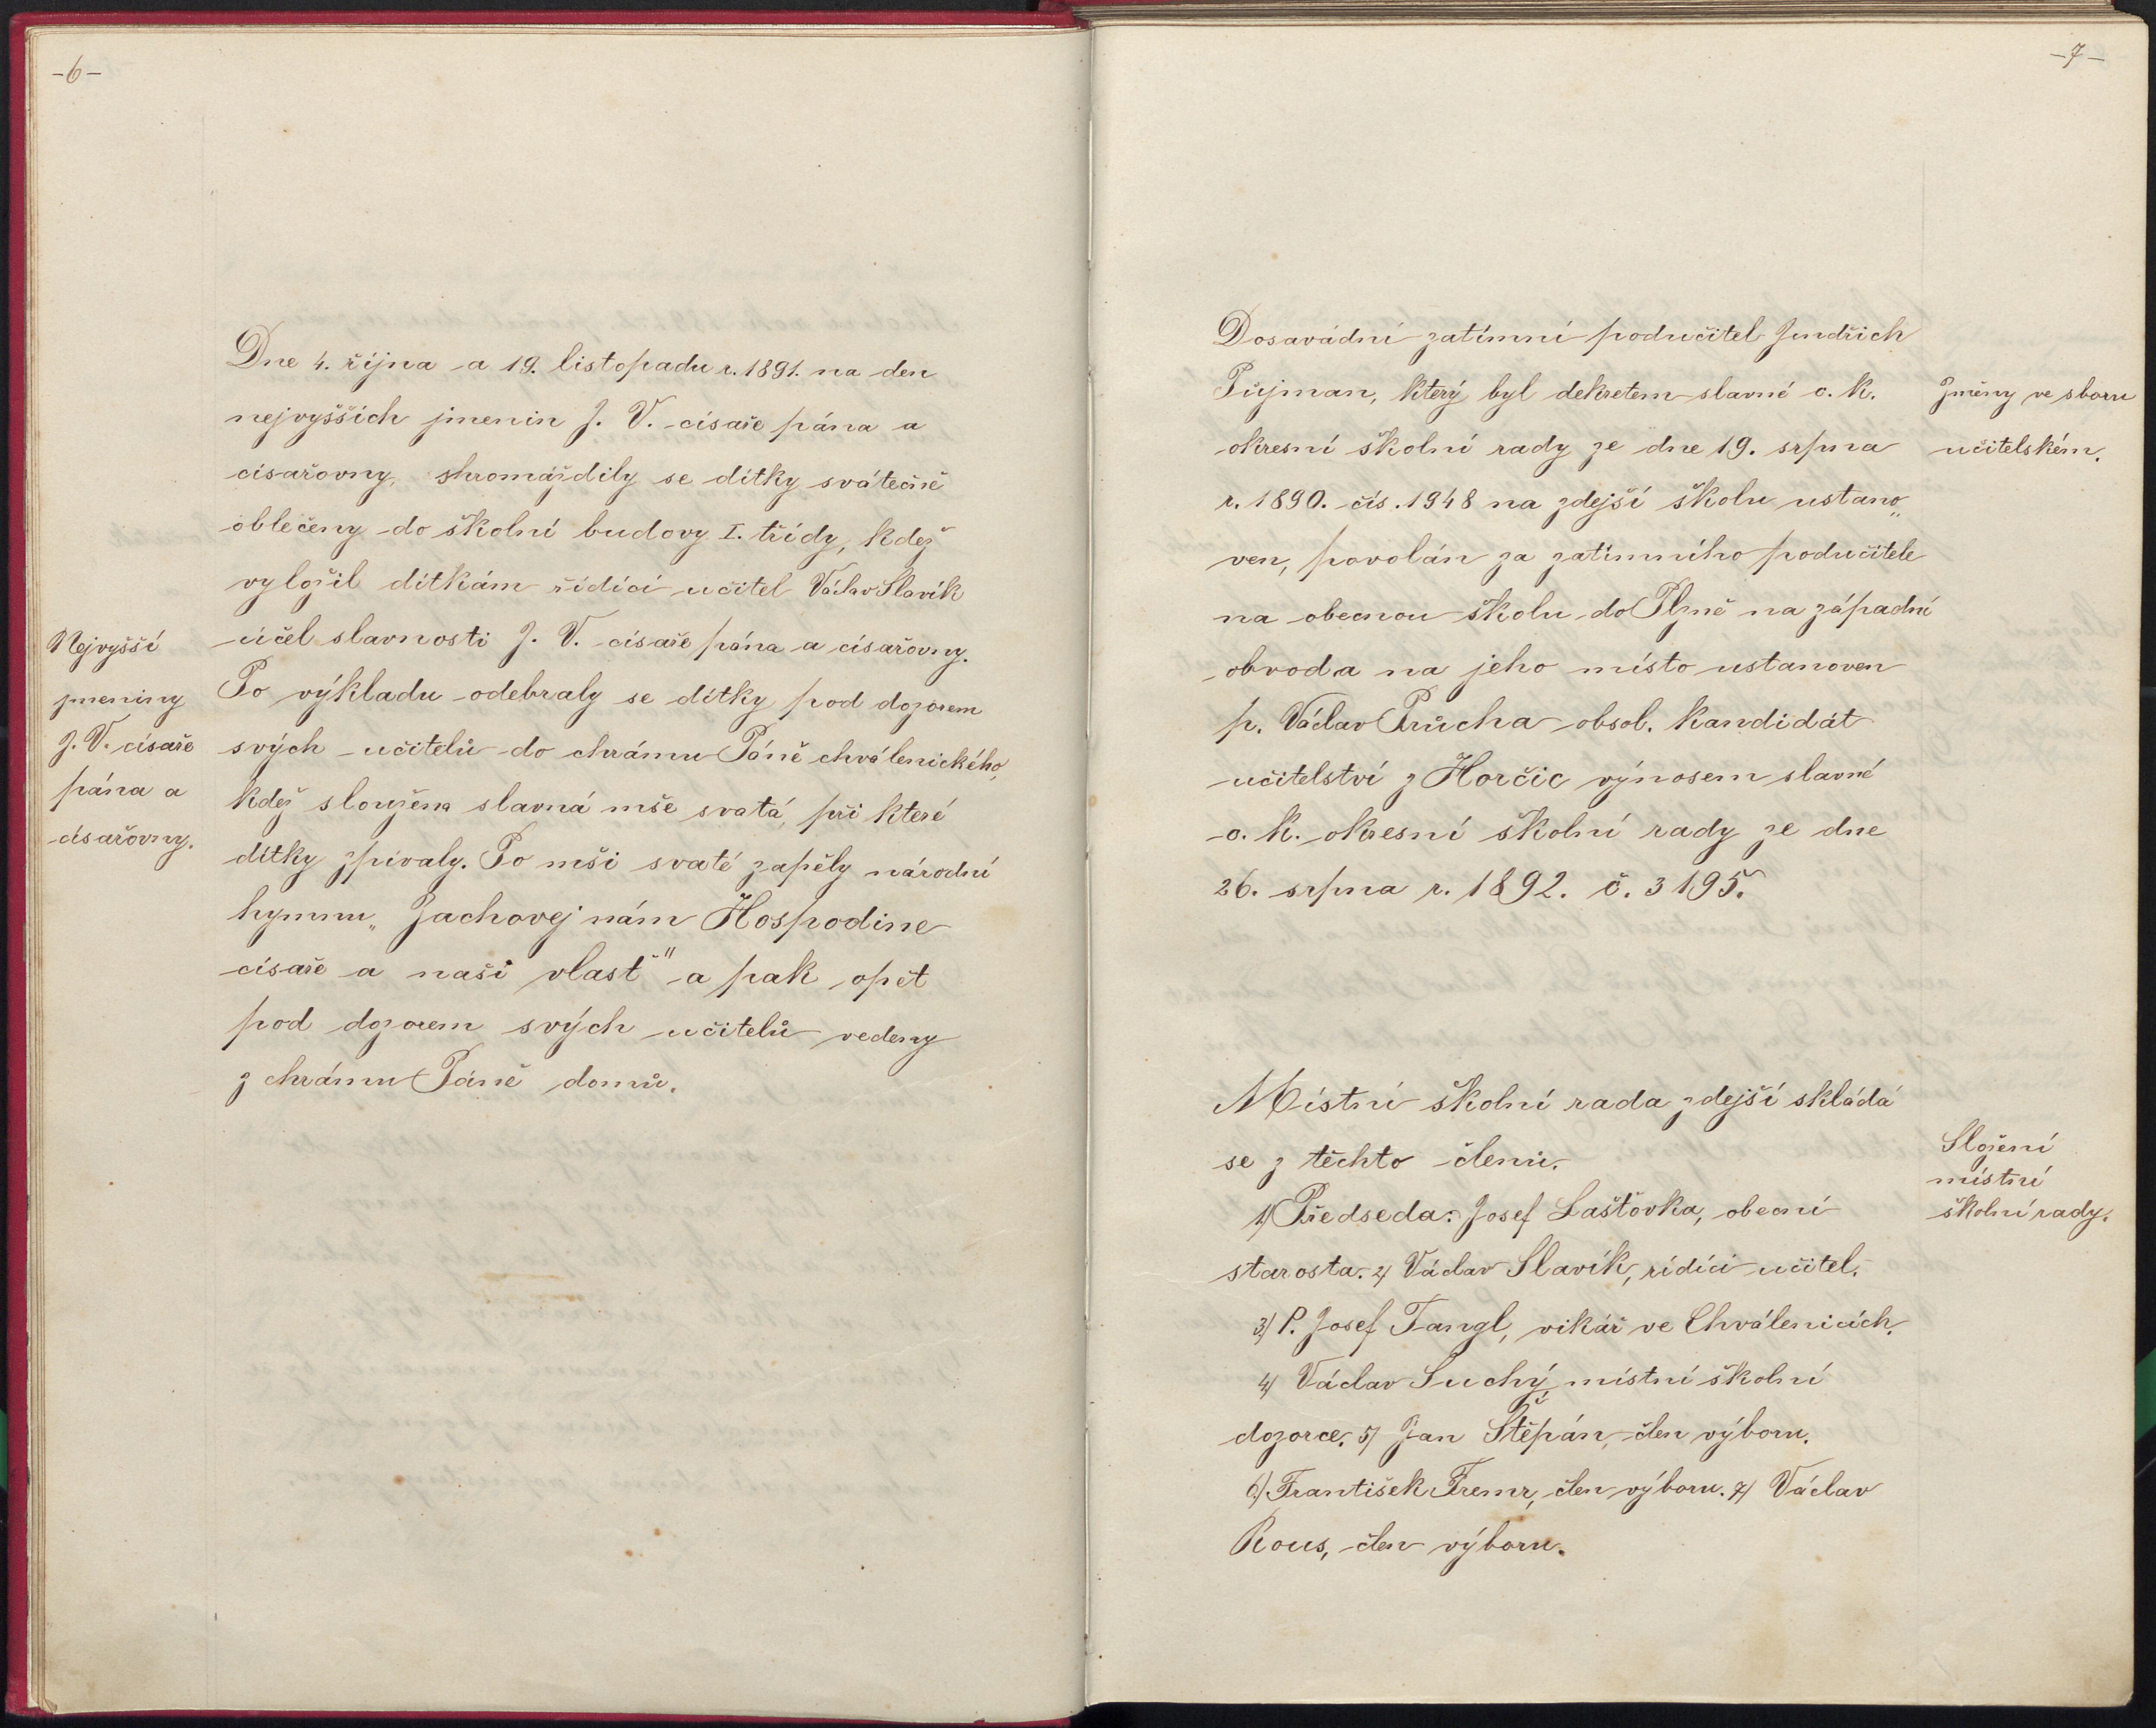 -6-
Dne 4. října a 19. listopadu r. 1891. na den
nejvyšších jmenin J. V. císaře pána a
císařovny, shromáždily se dítky svátečně
oblečeny do školní budovy I. třídy, kdež
vyložil dítkám řídící učitel Václav Slavík
účel slavnosti J. V. císaře pána a císařovny.
Po výkladu odebraly se dítky pod dozorem
svých učitelů do chrámu Páně chválenického,
kdež sloužena slavná mše svatá, při které
dítky zpívaly. Po mši svaté zapěly národní
hymnu „Zachovej nám Hospodine
císaře a naši vlasť" a pak opět
pod dozorem svých učitelů vedeny
z chrámu Páně domů.
Nejvyšší
jmeniny
J. V. císaře
pána a
císařovny.
-7-
Dosavádní zatímní podučitel Jindřich
Půjman, který byl dekretem slavné c. k.
okresní školní rady ze dne 19. srpna
r. 1890. čís. 1948 na zdejší školu ustano„
ven, povolán za zatímního podučitele
na obecnou školu do Plzně na západní
obvod a na jeho místo ustanoven
p. Václav Průcha obsol. kandidát
učitelství z Horčic výnosem slavné
c. k. okresní školní rady ze dne
26. srpna r. 1892. č. 3195.
Změny ve sboru
učitelském.
Místní školní rada zdejší skládá
se z těchto členů.
1) Předseda: Josef Laštovka, obecní
starosta. 2) Václav Slavík, řídící učitel.
3) P. Josef Tangl, vikář ve Chválenicích.
4) Václav Suchý, místní školní
dozorce. 5) Jan Štěpán, člen výboru.
6.) František Fremr, člen výboru. 7) Václav
Rous, člen výboru.
Složení
místní
školní rady.